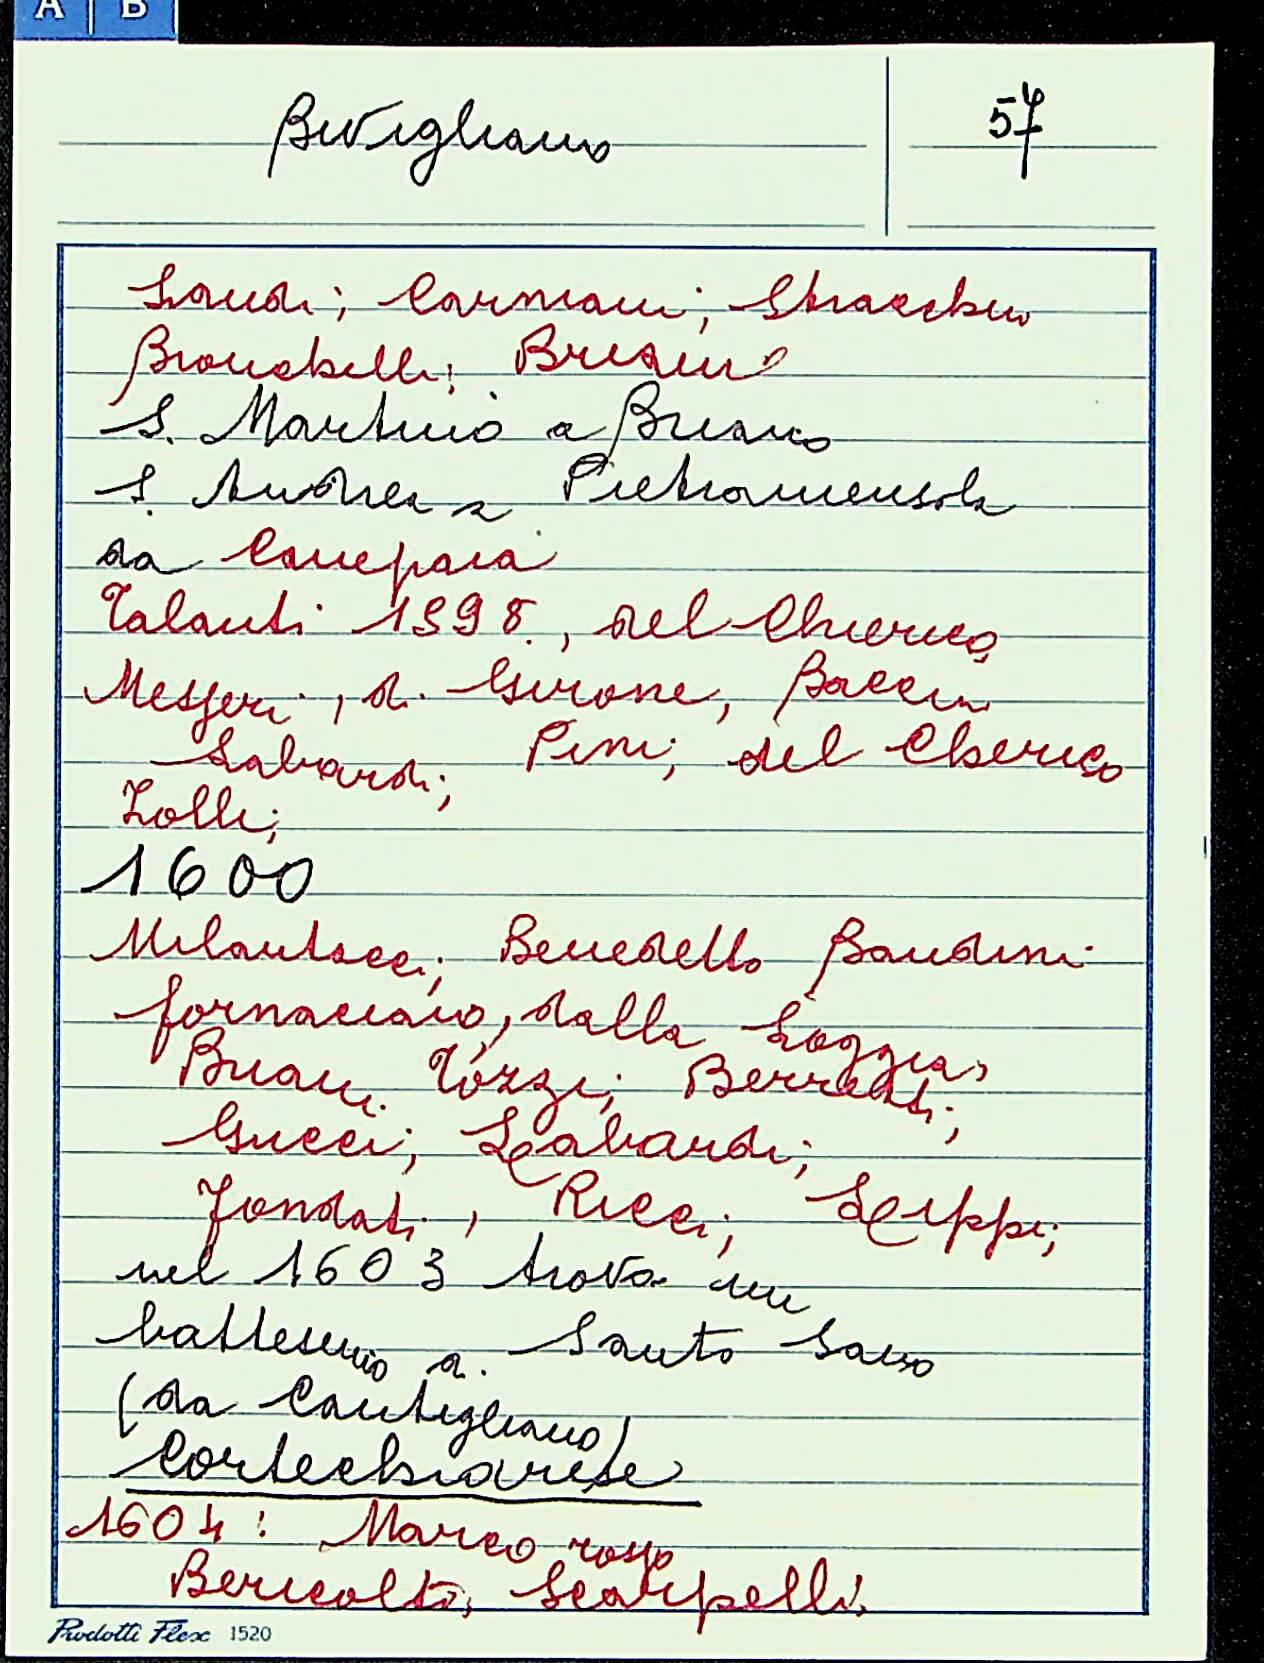 A B
Bivigliano
57
Landi; Carniani; Stracchin
Bronchelli; Brisini
S. Martino a Buiano
S. Andrea a Pietramensola
da Canepaia
Talanti 1598, del Chierico
Messeri, di Girone, Baccin
Labardi; Pini; del Cherico
Zolli;
1600
Milantocci; Benedetto Bandini
fornaciaio, dalla Loggia,
Buani Tozzi; Berretti;
Gucci; Labardi;
Fondati, Ricci; Lippi;
nel 1603 trova un
battesimo a Santo Savo
(da Cantigliano)
Cortechiarese
1604: Marco rosso
Bericolto; Scarpelli;
Prodotti Flex 1520